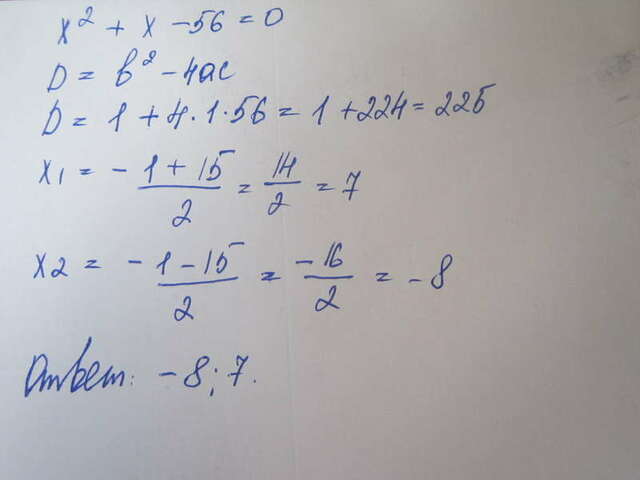 x² + x - 56 = 0
D = b² - 4ac
D = 1 + 4 · 1 · 56 = 1 + 224 = 225
x1 = - (1 + 15)/2 = 14/2 = 7
x2 = - (1 - 15)/2 = -16/2 = -8
Ответ: -8; 7.